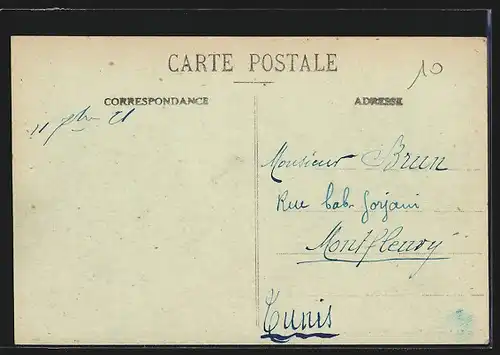 CARTE POSTALE
10
CORRESPONDANCE
ADRESSE
11 21
Monsieur Brun
Rue bab Gorjani
Montfleury
Tunis